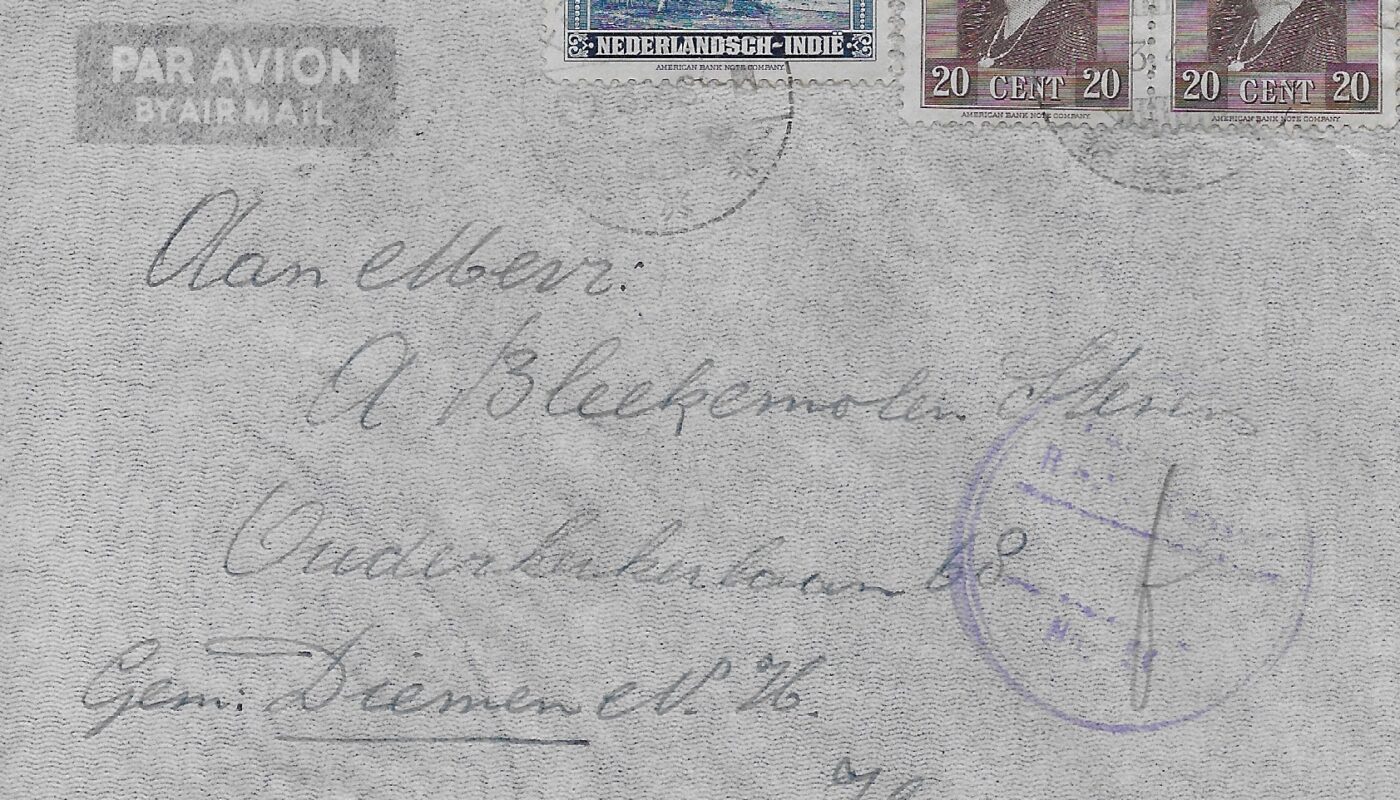 PAR AVION
BY AIR MAIL
NEDERLANDSCH-INDIË
AMERICAN BANK NOTE COMPANY
20 CENT 20
AMERICAN BANK NOTE COMPANY
20 CENT 20
AMERICAN BANK NOTE COMPANY
Aan Mevr:
A Bleekemolen
Ouderkerkerlaan 68
Gem: Diemen N. H.